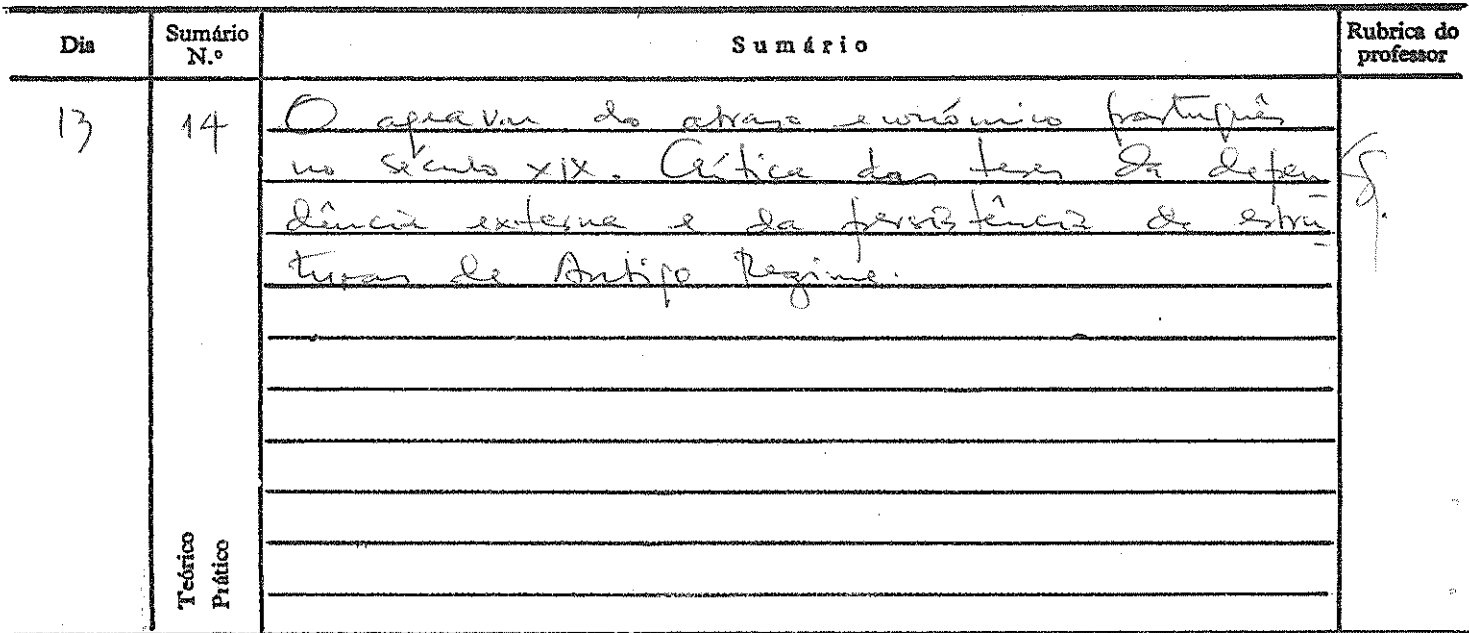 Dia
Sumário N.º
Sumário
Rubrica do professor
13
14
O agravar do atraso económico português
no século XIX. Crítica das teses da depen-
dência externa e da persistência de estru-
turas de Antigo Regime.
Teórico
Prático